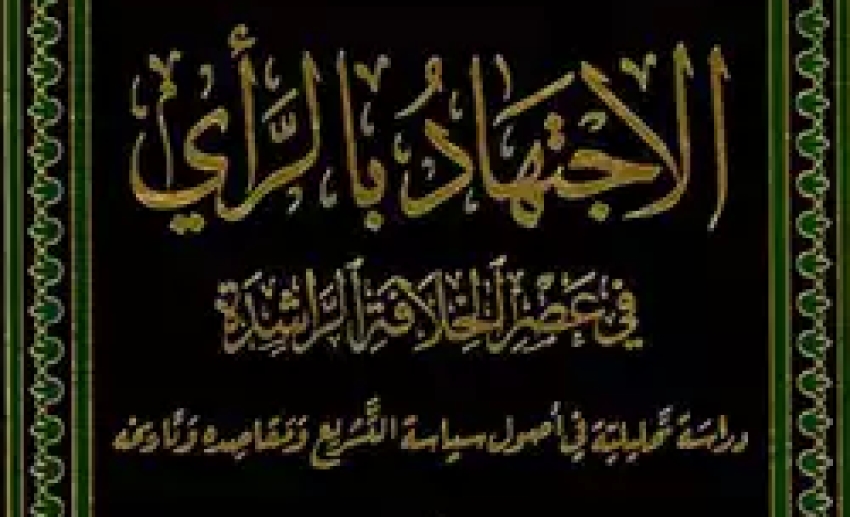 الاجتهادُ بالرَّأي
في عَصْرِ الخِلافَةِ الرَّاشِدَة
دراسَة تحليليّة في أصول سياسة التَّشريع وَمقاصِده وَتاريخه